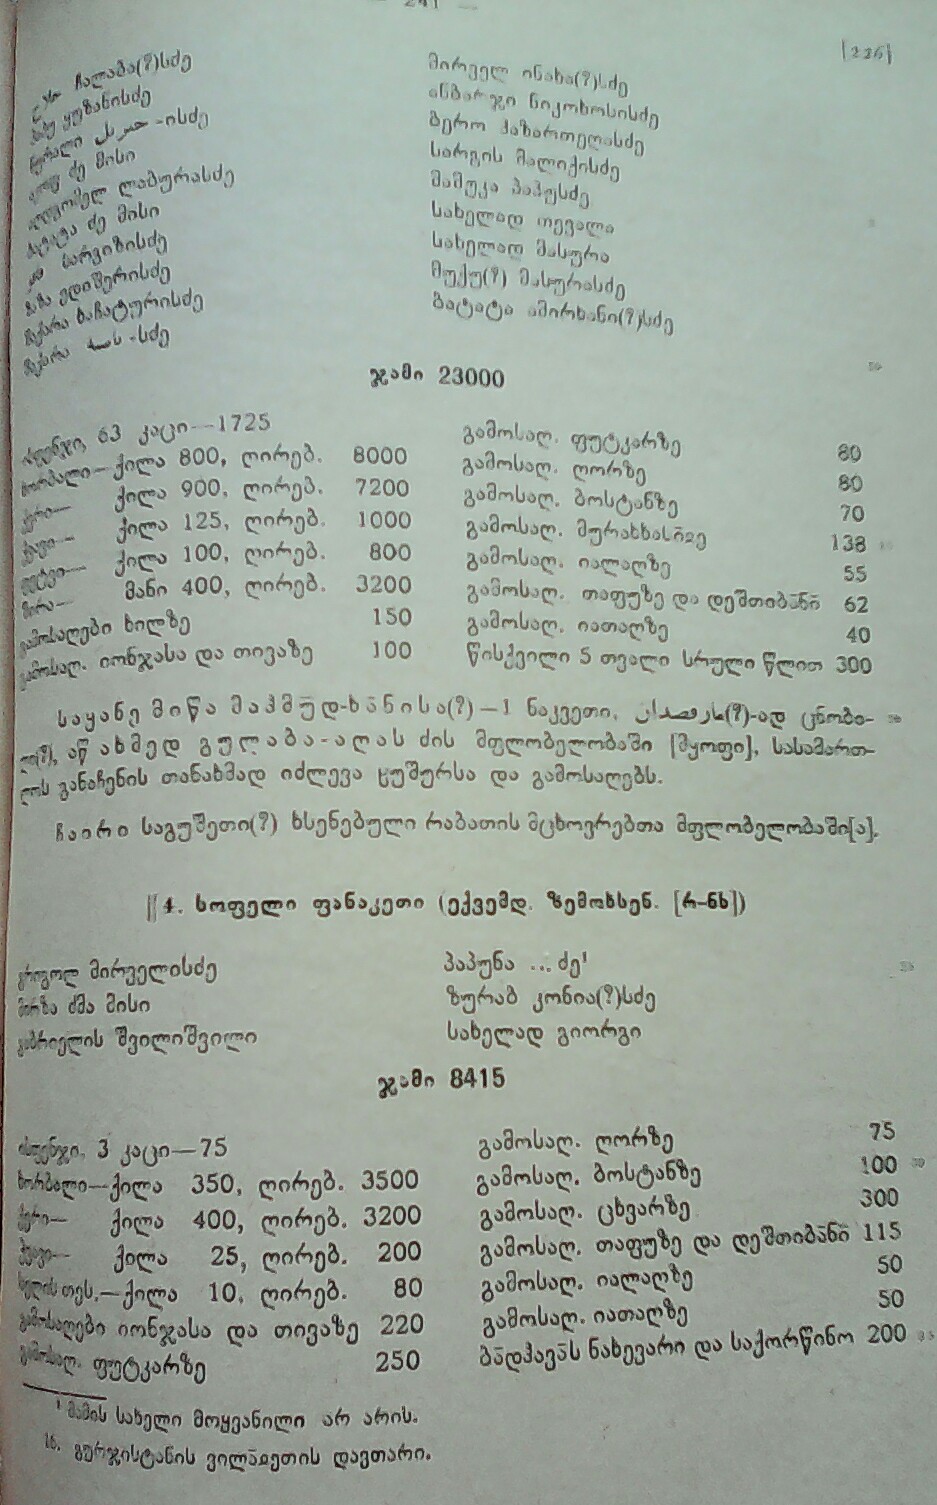 — 241 —
[226]
ჩალაბა(?)სძე
ყუზანისძე
-ისძე
ძე მისი
ლაბურასძე
ბატატა ძე მისი
სარვიზისძე
ედიშერისძე
ზაქარა ხაჩატურისძე
ზაქარა -სძე
მირველ ინახა(?)სძე
ანბარჯი ნიკოხოსისძე
ბერო პაზართელასძე
სარგის მალიქისძე
მამუკა პაპუსძე
სახელად თევალა
სახელად მასურა
მუქუ(?) მასურასძე
ბატატა ამირხანი(?)სძე
ჯამი 23000
ისფენჯი, 63 კაცი—1725
ხორბალი—ქილა 800, ღირებ. 8000
ქერი— ქილა 900, ღირებ. 7200
ჭვავი— ქილა 125, ღირებ. 1000
ფეტვი— ქილა 100, ღირებ. 800
ზირა— მანი 400, ღირებ. 3200
გამოსაღები ხილზე 150
გამოსაღ. იონჯასა და თივაზე 100
გამოსაღ. ფუტკარზე 80
გამოსაღ. ღორზე 80
გამოსაღ. ბოსტანზე 70
გამოსაღ. 138
გამოსაღ. იალაღზე 55
გამოსაღ. თაფუზე და დეშთიბა̄ნი̄ 62
გამოსაღ. იათაღზე 40
წისქვილი 5 თვალი სრული წლით 300
საყანე მიწა მაჰმუ̄დ-ხა̄ნისა(?)—1 ნაკვეთი, (?)-ად ცნობი-
ლი(?), აწ ახმედ გულაბა-აღას ძის მფლობელობაში [მყოფი], სასამართ-
ლოს განაჩენის თანახმად იძლევა ჲუშურსა და გამოსაღებს.
ჩაირი საგუშეთი(?) ხსენებული რაბათის მცხოვრებთა მფლობელობაში[ა].
||4. სოფელი ფანაკეთი (ექვემდ. ზემოხსენ. [რ-ნს])
გოგოლ მირველისძე
მირზა ძმა მისი
გაბრიელის შვილიშვილი
პაპუნა ... ძე¹
ზურაბ კონია(?)სძე
სახელად გიორგი
ჯამი 8415
ისფენჯი, 3 კაცი—75
ხორბალი—ქილა 350, ღირებ. 3500
ქერი— ქილა 400, ღირებ. 3200
ჭვავი— ქილა 25, ღირებ. 200
სელის თეს.—ქილა 10, ღირებ. 80
გამოსაღები იონჯასა და თივაზე 220
გამოსაღ. ფუტკარზე 250
გამოსაღ. ღორზე 75
გამოსაღ. ბოსტანზე 100
გამოსაღ. ცხვარზე 300
გამოსაღ. თაფუზე და დეშთიბა̄ნი̄ 115
გამოსაღ. იალაღზე 50
გამოსაღ. იათაღზე 50
ბა̄დჰავა̄ს ნახევარი და საქორწინო 200
¹ მამის სახელი მოყვანილი არ არის.
16. გურჯისტანის ვილაჲეთის დავთარი.